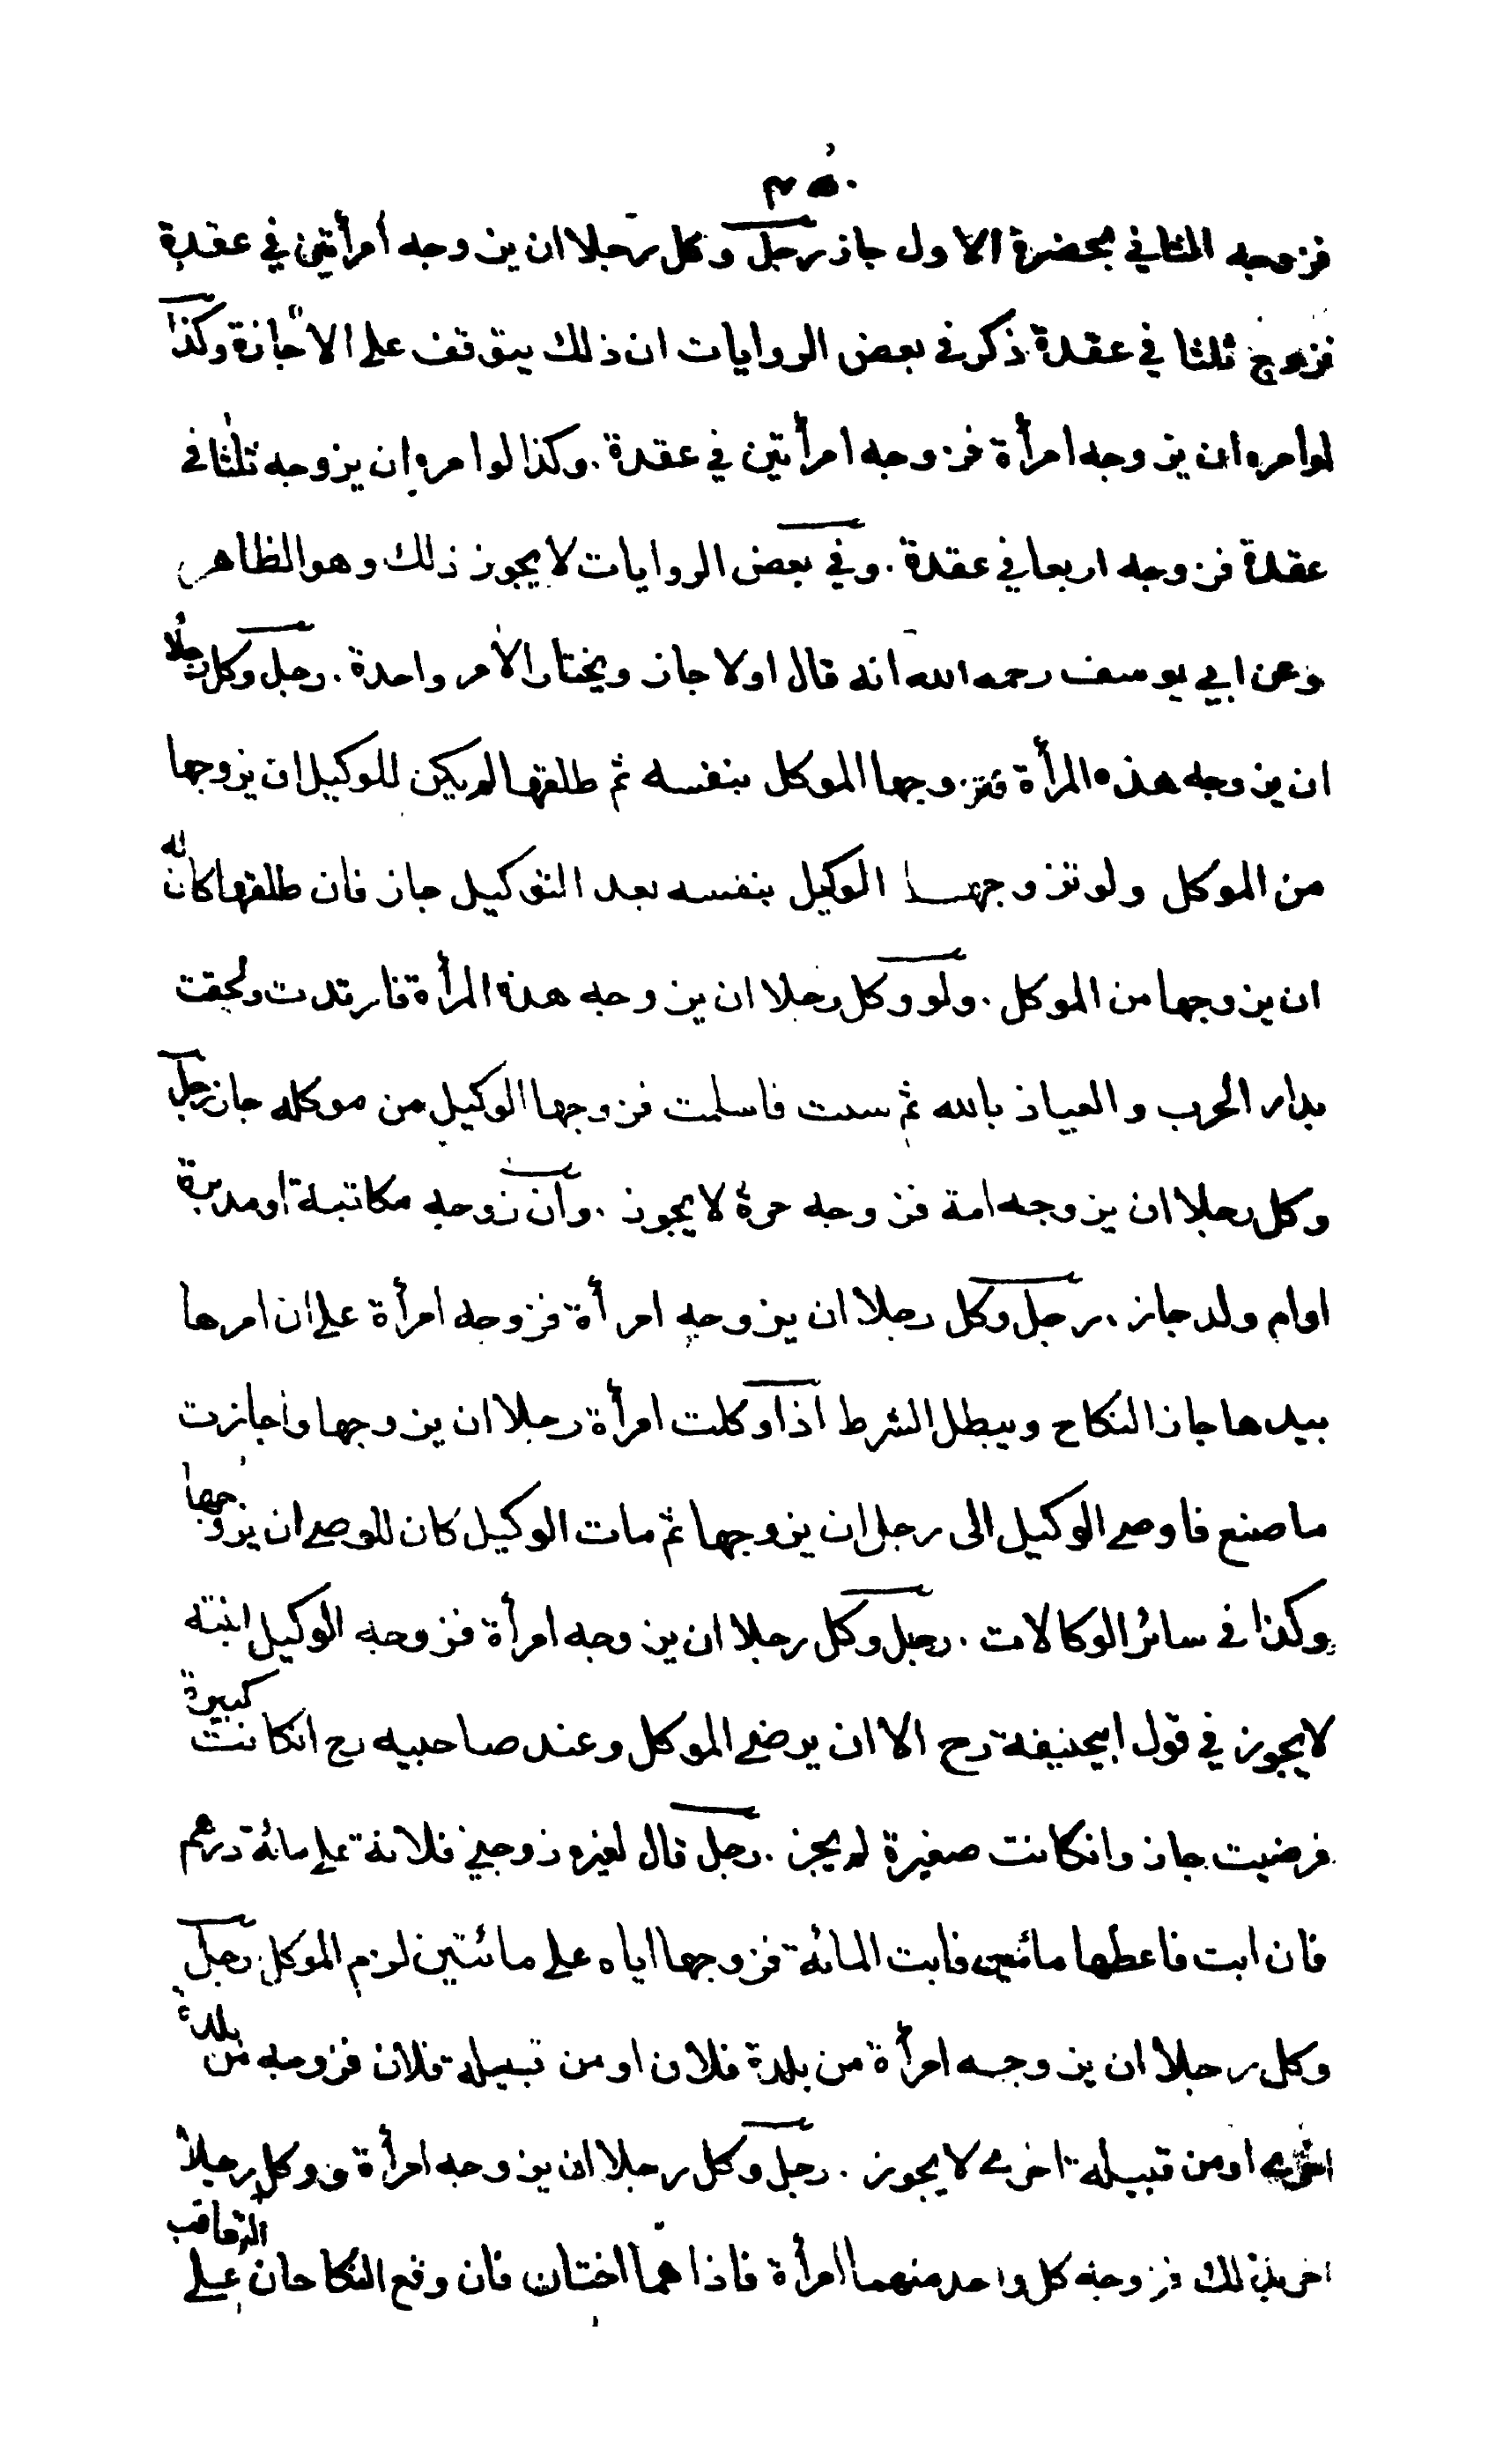 ٣٥٠
فزوجه الثاني بحضرة الاول جاز رجل وكل رجلا ان يزوجه امرأتين في عقدة
فزوج ثلثا في عقدة ذكر في بعض الروايات ان ذلك يتوقف على الاجازة وكذا
لوامره ان يزوجه امرأة فزوجه امرأتين في عقدة . وكذا لوامره ان يزوجه ثلثا في
عقدة فزوجه اربعا في عقدة . وفي بعض الروايات لا يجوز ذلك وهو الظاهر
وعن ابي يوسف رحمه الله انه قال اولا جاز ويختار الأمر واحدة . رجل وكل رجلا
ان يزوجه هذه المرأة فتزوجها الموكل بنفسه ثم طلقها لم يكن للوكيل ان يزوجها
من الموكل ولو تزوجها الوكيل بنفسه بعد التوكيل جاز فان طلقها كان له
ان يزوجها من الموكل . ولو وكل رجلا ان يزوجه هذه المرأة فارتدت ولحقت
بدار الحرب والعياذ بالله ثم سبت فاسلمت فزوجها الوكيل من موكله جاز رجل
وكل رجلا ان يزوجه امة فزوجه حرة لا يجوز . وان زوجه مكاتبة او مدبرة
اوام ولد جاز . رجل وكل رجلا ان يزوجه امرأة فزوجه امرأة على ان امرها
بيدها جاز النكاح ويبطل الشرط اذا وكلت امرأة رجلا ان يزوجها واجازت
ما صنع فاوصى الوكيل الى رجل ان يزوجها ثم مات الوكيل كان للوصي ان يزوجها
وكذا في سائر الوكالات . رجل وكل رجلا ان يزوجه امرأة فزوجه الوكيل ابنته
لا يجوز في قول ابيحنيفة رح الا ان يرضى الموكل وعند صاحبيه رح انكانت كبيرة
فرضيت جاز وانكانت صغيرة لم يجز . رجل قال لغيره زوجني فلانة على مائة درهم
فان ابت فاعطها مائتين فابت المائة فزوجها اياه على مائتين لزم الموكل رجل
وكل رجلا ان يزوجه امرأة من بلدة فلان او من قبيلة فلان فزوجه من بلدة
اخرى او من قبيلة اخرى لا يجوز . رجل وكل رجلا ان يزوجه امرأة ووكل رجلا
اخر بذلك فزوجه كل واحد منهما امرأة فاذا هما اختان فان وقع النكاحان على التعاقب